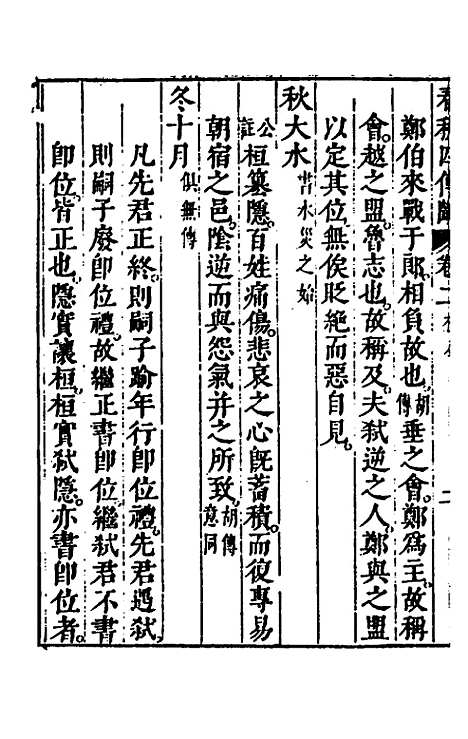 春秋四傳 卷二
鄭伯來戰于郎相負故也胡傳垂之會鄭為主故稱
會越之盟魯志也故稱及夫弑逆之人鄭與之盟
以定其位無俟貶絕而惡自見
秋大水書水災之始
公註桓篡隱百姓痛傷悲哀之心既蓄積而復專易
朝宿之邑陰逆而與怨氣并之所致胡傳意同
冬十月俱無傳
凡先君正終則嗣子踰年行卽位禮先君遇弑
則嗣子廢卽位禮故繼正書卽位繼弑君不書
卽位皆正也隱實讓桓桓實弑隱亦書卽位者